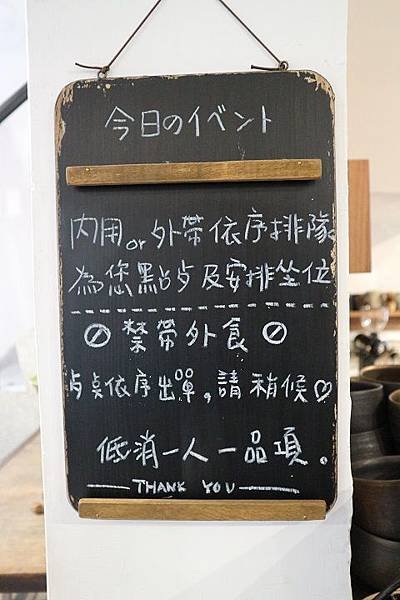 今日のイベント
内用or外帶依序排隊
為您點占及安排坐位
禁帶外食
占桌依序出單,請稍候♡
低消一人一品項。
THANK YOU